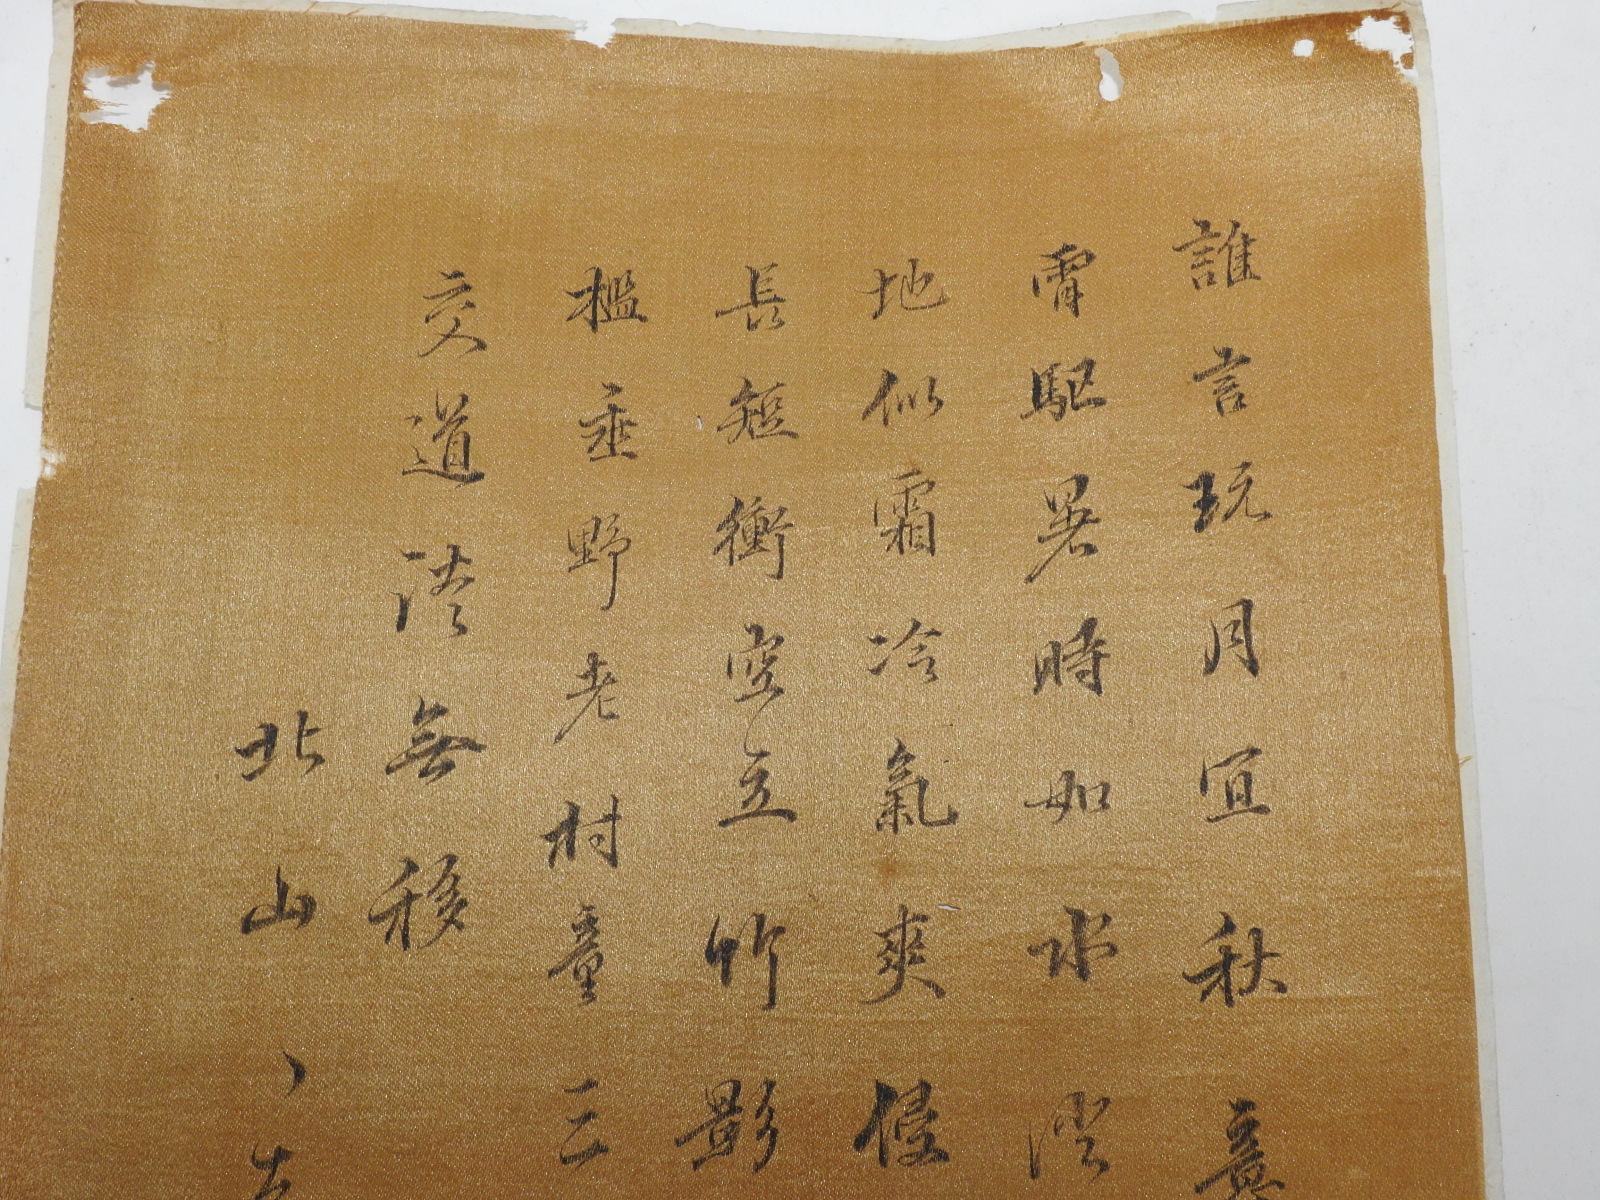 誰言玩月宜秋意
宵駆暑時如水澄
地似霜冷氣爽侵
長短衝空立竹影
檻垂野老村童三
交道淡無移
北山